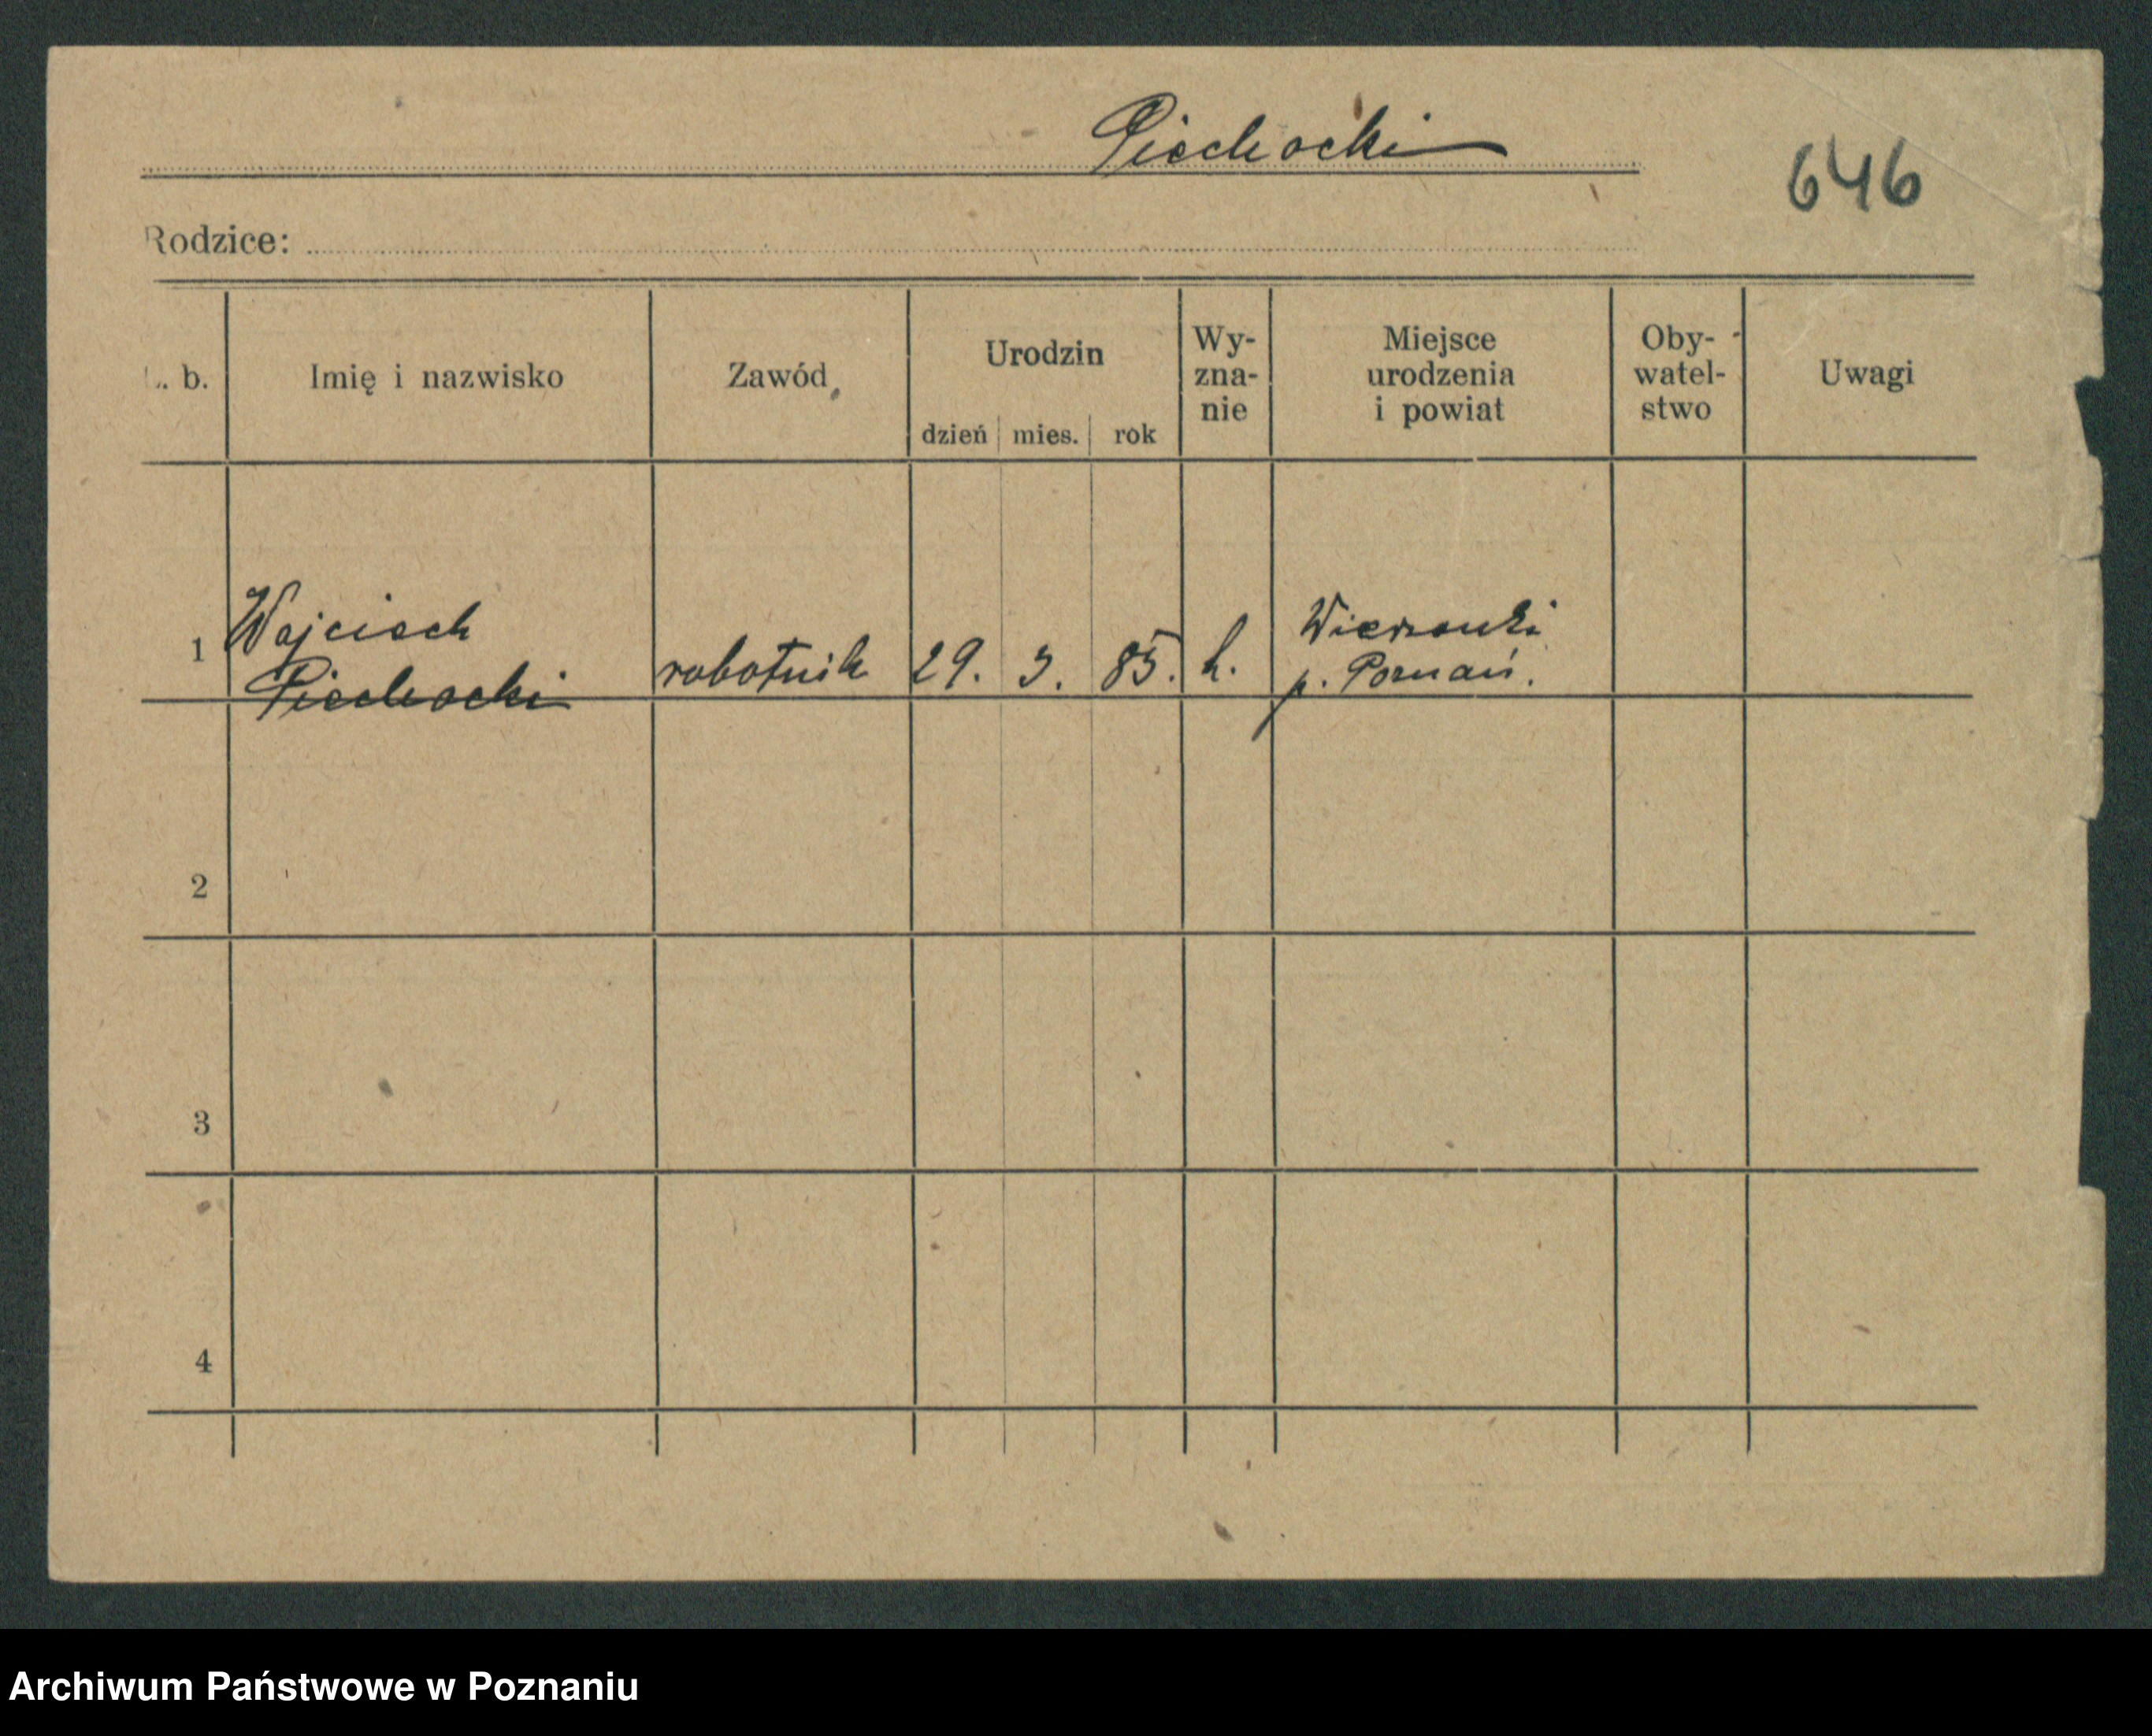 Piechocki
646
Rodzice:
L. b.
Imię i nazwisko
Zawód
Urodzin
dzień mies. rok
Wy-
zna-
nie
Miejsce
urodzenia
i powiat
Oby-
watel-
stwo
Uwagi
1
Wojciech
Piechocki
robotnik
29. 3. 85.
k.
p. Poznań.
2
3
4
Archiwum Państwowe w Poznaniu